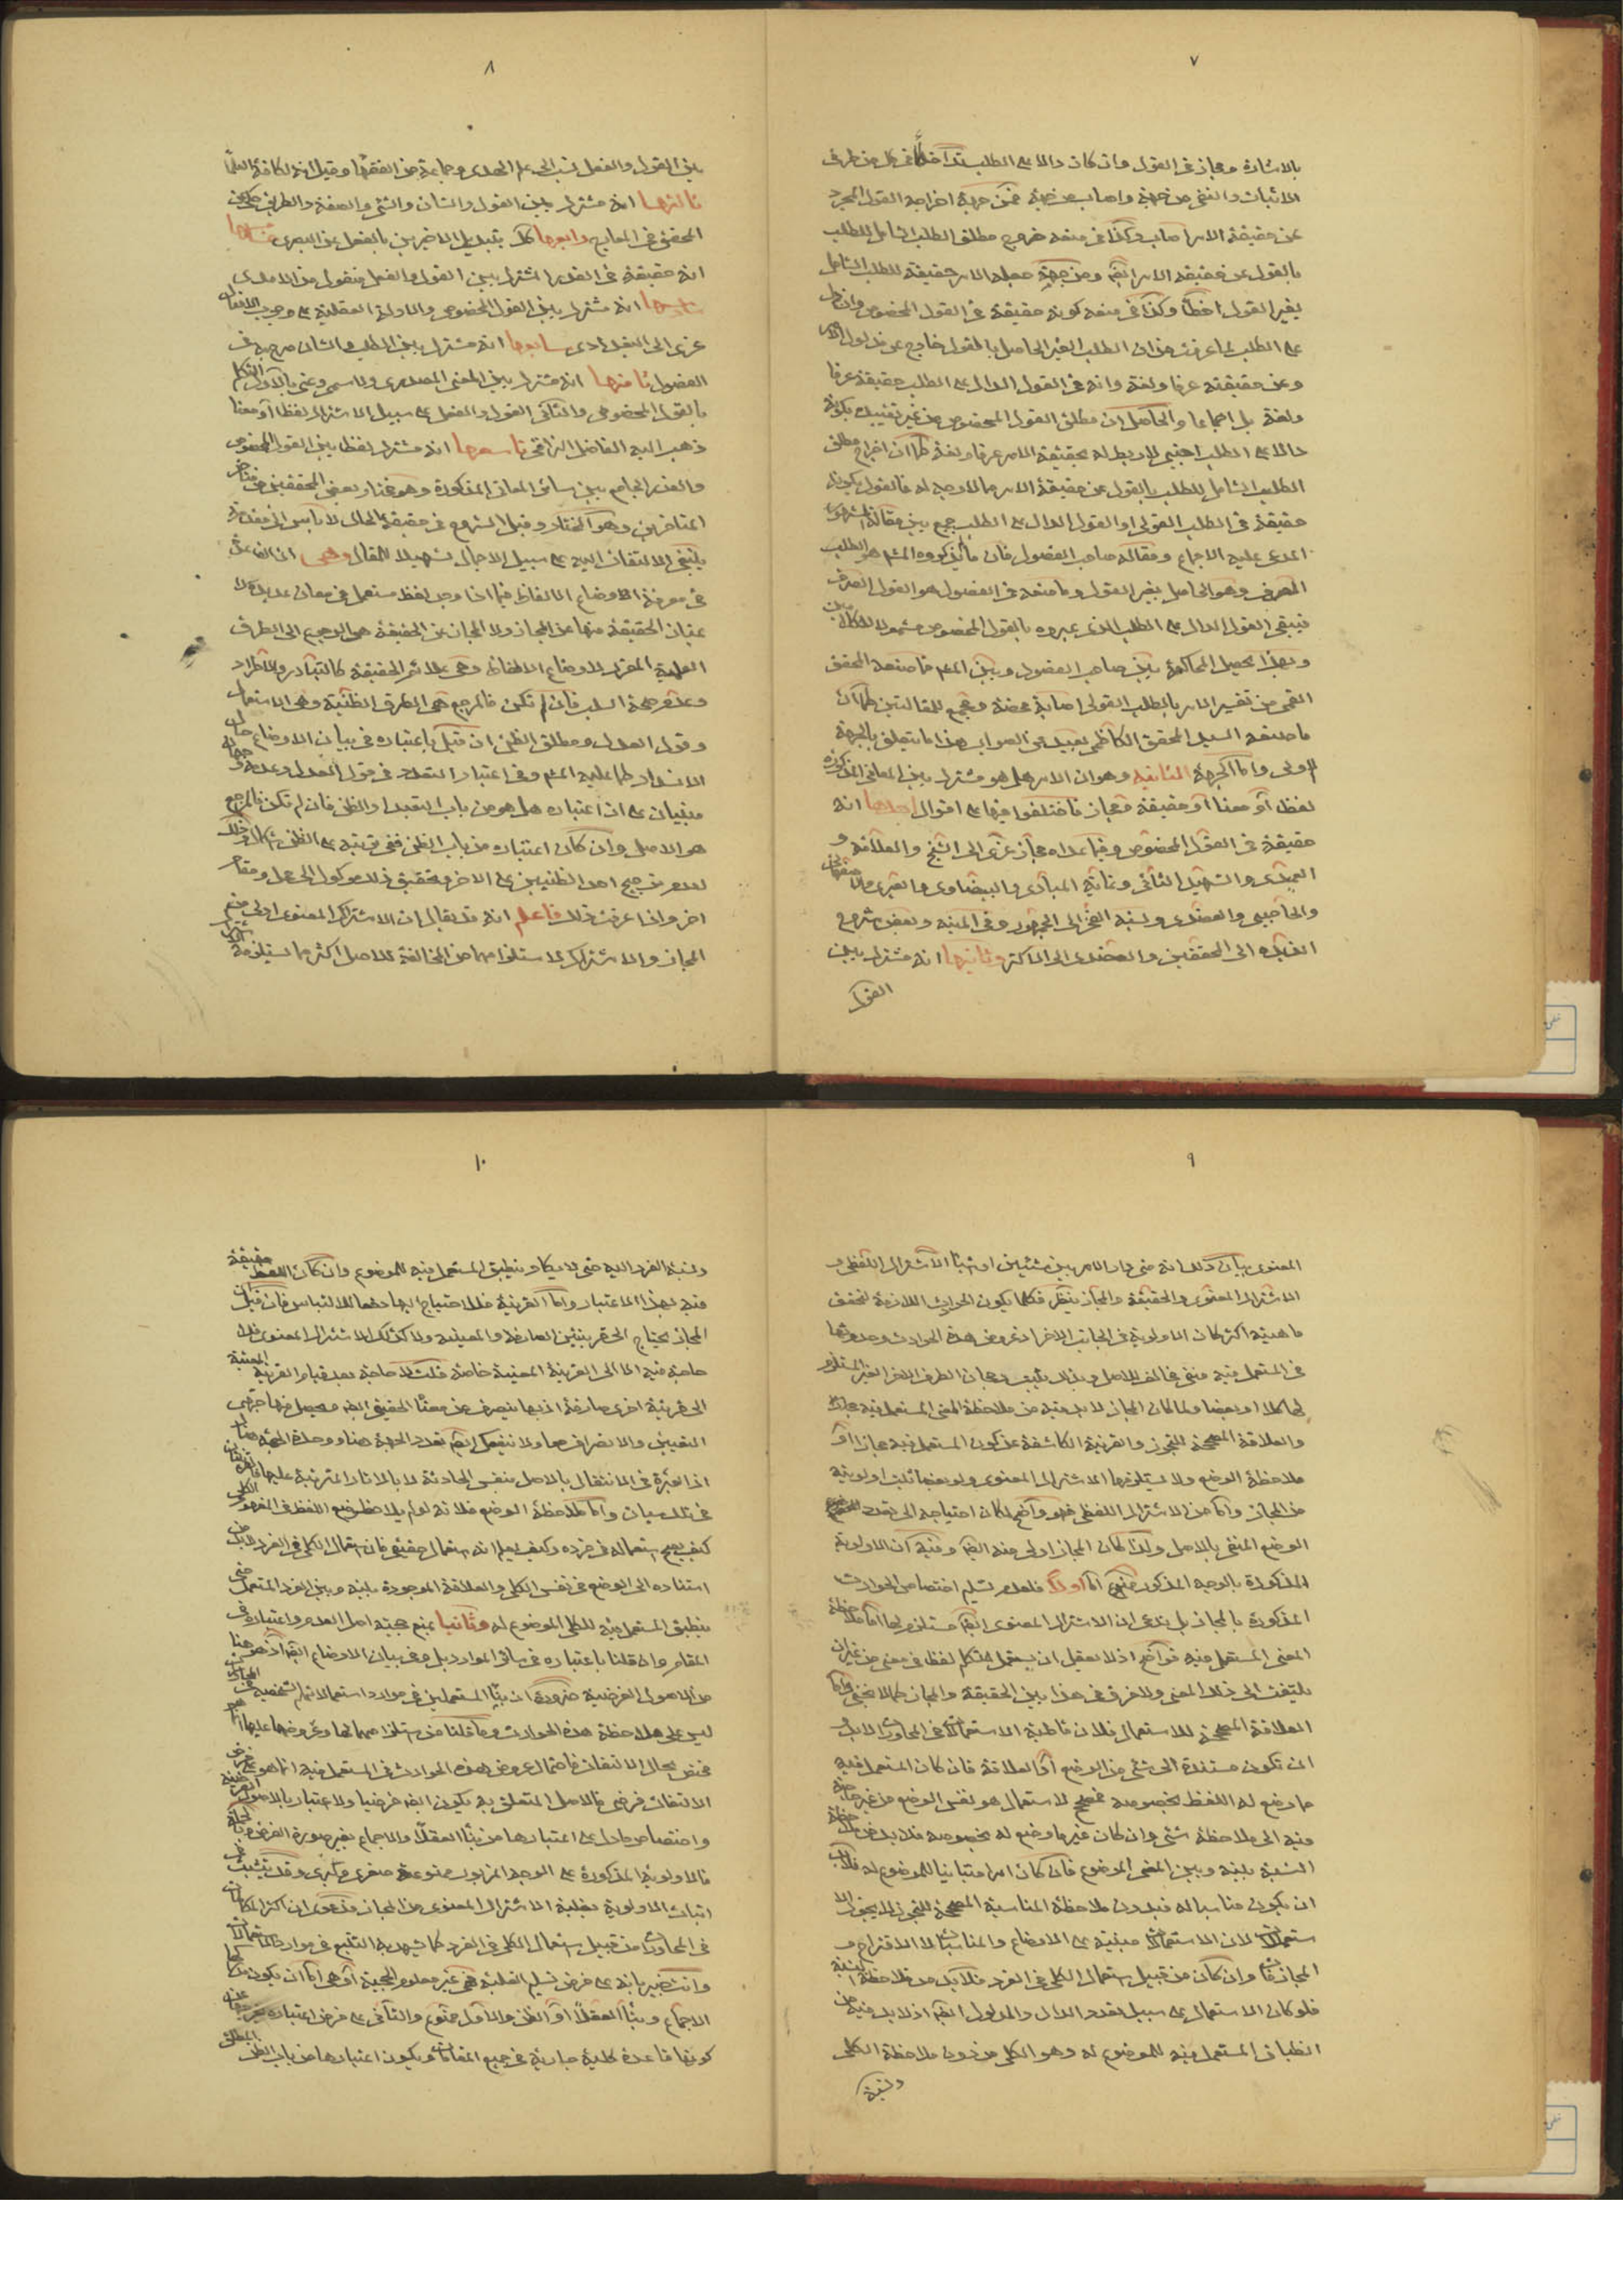 ٧
بالاشارة ومجاز فى القول وان كان دالا على الطلب
الاثبات والنفى من جهة
عن حقيقة الامر وكذا فى منعه خروج مطلق الطلب الشامل للطلب
بالقول عن حقيقة الامر ايضا ومن جهة جعله الامر حقيقة للطلب الشامل
بغير القول اخطأ وكذا فى منعه كونه حقيقة فى القول المخصوص وان دل
على الطلب لما عرفت من ان الطلب الغير الحاصل بالقول خارج عن مدلول الامر
وعن حقيقته عرفا ولغة وانه فى القول الدال على الطلب حقيقة عرفا
ولغة بل اجماعا والحاصل ان مطلق القول المخصوص من غير تقييده بكونه
دالا على الطلب اجنبى لا ربط له بحقيقة الامر عرفا ولغة كما ان اخراج مطلق
الطلب الشامل للطلب بالقول عن حقيقة الامر مما لا وجه له فالقول بكونه
حقيقة فى الطلب القولى او القول الدال على الطلب جمع بين مقالة المشهور
المدعى عليه الاجماع ومقالة صاحب الفصول فان ما انكروه المشهور هو الطلب
الصرف وهو الحاصل بغير القول وما منعه فى الفصول هو القول الصرف
فيبقى القول الدال على الطلب الذى عبروه بالقول المخصوص مشمولا للكلامين
وبهذا يحصل المحاكمة بين صاحب الفصول وبين المشهور فما صنعه المحقق
القمى من تفسير الامر بالطلب القولى اصابة محضة وجمع للمقالتين كما ان
ما صنعه السيد المحقق الكاظمى بعيد عن الصواب هذا ما يتعلق بالجهة
الاولى واما الجهة الثانية وهو ان الامر هل هو مشترك بين المعانى المذكورة
لفظا او معنا او حقيقة ومجاز فاختلفوا فيها على اقوال احدها انه
حقيقة فى القول المخصوص وفيما عداه مجاز عزى الى الشيخ والعلامة و
العميدى والشهيد الثانى وغاية المبادى والبيضاوى والعبرى والاصفهانى
والحاجبى والعضدى ونسبة الفخر الى الجمهور وفى المنية وبعض شروح
الزبدة الى المحققين والعضدى الى الاكثر وثانيها انه مشترك بين
القول
٨
بين القول والفعل نسب الى علم الهدى وجماعة من الفقهاء وقيل انه لكافة العلماء
ثالثها انه مشترك بين القول والشان والشئ والصفة والطريق حكى عن
المحقق فى المعارج رابعها كك بتبديل الاخيرين بالفعل عن البصرى خامسها
انه حقيقة فى القدر المشترك بين القول والفعل منقول من الامدى
سادسها انه مشترك بين القول المخصوص والادلة العقلية على وجوب الافعال
عزى الى البغدادى سابعها انه مشترك بين الطلب والشان صرح به فى
الفصول ثامنها انه مشترك بين المعنى المصدرى والاسمى وعنى بالاول التكلم
بالقول المخصوص والثانى القول والفعل على سبيل الاشتراك لفظا او معنا
ذهب اليه الفاضل النراقى تاسعها انه مشترك لفظا بين القول المخصوص
والقدر الجامع بين سائر المعانى المذكورة وهو مختار بعض المحققين من
المتاخرين وهو المختار وقبل الشروع فى حقيقة الحال لا بأس الى مقدمة
ينبغى الالتفات اليه على سبيل الاجمال تسهيلا للمقال وهى ان
فى معرفة الاوضاع الالفاظ فيما اذا وجد لفظ مستعمل فى معان عديدة لا
يمتاز الحقيقة منها عن المجاز ولا المجاز عن الحقيقة هى الرجوع الى الطرق
العلمية المقررة لاوضاع الالفاظ وهى علائم الحقيقة كالتبادر والاطراد
وعدم صحة السلب فان لم تكن فالمرجع هى الطرق الظنية وهى الاستعمال
وقول العدل ومطلق الظن ان قيل باعتباره فى بيان الاوضاع حال
الانسداد كما عليه المشهور وفى اعتبار التعدد فى قول العدل وعدمه وجهان
مبنيان على ان اعتباره هل هو من باب التعبد او الظن فان لم تكن فالمرجع
هو الاصل وان كان اعتباره من باب الظن ففى ترتبه على الظن اشكال وذلك
لعدم ترجيح احد الظنيين على الاخر وتحقيق ذلك موكول الى محل ومقام
اخر واذا عرفت ذلك فاعلم انه قد يقال ان الاشتراك المعنوى اولى من
المجاز والاشتراك لاستلزامهما من المخالفة للاصل اكثر مما يستلزمه
٩
المعنوى بيان ذلك انه متى دار الامر بين شيئين او اشياء كالاشتراك اللفظى و
الاشتراك المعنوى والحقيقة والمجاز ينظر فكلما يكون الحوادث اللازمة لتحقق
ماهيته اكثر كان الاولوية فى الجانب الاخر اذ عروض هذه الحوادث وحدوثها
فى المستعمل فيه منفى مخالف للاصل وبذلك يثبت رجحان الطرف الاخر الغير المستلزم
لها كلا او بعضا ولما كان المجاز لا بد فيه من ملاحظة المعنى المستعمل فيه
والعلاقة المصححة للتجوز والقرينة الكاشفة عن كون المستعمل فيه مجازا او
ملاحظة الوضع ولا يستلزمها الاشتراك المعنوى ولو بعضها ثبت اولويته
من المجاز واما من الاشتراك اللفظى فهو واضح لمكان احتياجه الى تعدد
الوضع المنفى بالاصل ولذا كان المجاز اولى منه ايضا وفيه ان الاولوية
المذكورة بالوجه المذكور ممنوع اما اولا فلعدم تسليم اختصاص الحوادث
المذكورة بالمجاز بل ندعى ان الاشتراك المعنوى ايضا مستلزم لها اما ملاحظة
المعنى المستعمل فيه فواضح اذ لا يعقل ان يستعمل المتكلم لفظا فى معنى من غير ان
يلتفت الى ذلك المعنى ولا فرق فى هذا بين الحقيقة والمجاز كما لا يخفى واما
العلاقة المصححة للاستعمال فلان قاطبة الاستعمالات فى المحاورات لا بد و
ان تكون مستندة الى شئ من الوضع او العلاقة فان كان المستعمل فيه
ما وضع له اللفظ بخصوصه فمصحح الاستعمال هو نفس الوضع من غير حاجة
فيه الى ملاحظة شئ وان كان غير ما وضع له بخصوصه فلا بد من ملاحظة
النسبة بينه وبين المعنى الموضوع فان كان امرا متباينا للموضوع له فلا بد
ان يكون مناسبا له فبدون ملاحظة المناسبة المصححة للتجوز لا يجوز
استعماله لان الاستعمالات مبنية على الاوضاع والمناسبات لا الاقتراح و
المجازفات وان كان من قبيل استعمال الكلى فى الفرد فلا بد من ملاحظة
فلو كان الاستعمال على سبيل تعدد الدال والمدلول ايضا اذ لا بد فيه من
انطباق المستعمل فيه للموضوع له وهو الكلى من دون ملاحظة الكلى
ونسبة
١٠
ونسبة الفرد اليه حتى لا يكاد ينطبق المستعمل فيه للموضوع وان كان اللفظ حقيقة
فيه بهذا الاعتبار واما القرينة فللاحتياج اليها دفعا للالتباس فان قيل ان
المجاز يحتاج الى قرينتين الصارفة والمعينة ولا كذلك الاشتراك المعنوى فلا
حاجة فيه الا الى القرينة المعينة خاصة قلت لا حاجة بعد قيام القرينة المعينة
الى قرينة اخرى صارفة اذ بها ينصرف عن معناه الحقيقى ايضا فيحصل منها جهتى
التعيين والانصراف معا ولا ينفعك ايضا تعدد الجهة هنا ووحدة الجهة هناك
اذ العبرة فى الانتقال بالاصل بنفس الحادثة لا بالاثار المترتبة عليها
فى ذلك سيان واما ملاحظة الوضع فلانه لو لم يلاحظ وضع اللفظ فى المفهوم الكلى
كيف يصح استعماله فى فرده وكيف يعلم انه استعمال حقيقى فان استعمال الكلى فى الفرد لا بد من
استناده الى الوضع فى نفس الكلى والعلاقة الموجودة بينه وبين الفرد المستعمل حتى
ينطبق المستعمل فيه للكلى الموضوع له وثانيا بمنع حجية اصل العدم واعتباره فى
المقام وان قلنا باعتباره فى سائر الموارد بل وفى بيان الاوضاع ايضا اذ هو هنا
من الاصول الفرضية ضرورة ان بناء المستعملين فى موارد استعمالاتهم الشخصية
ليس على ملاحظة هذه الحوادث وما قلنا من استلزامهما لها وعروضها عليهما
مختص بحال الالتفات فاحتمال عروض هذه الحوادث فى المستعمل فيه انما هو على فرض
الالتفات فرضى فالاصل المتعلق به يكون ايضا فرضيا ولا اعتبار بالاصول الفرضية
واختصاص ما دل على اعتبارها من بناء العقلاء والاجماع بغير صورة الفرض
فالاولوية المذكورة على الوجه المزبور ممنوعة صغرى وكبرى وقد يتشبث فى
اثبات الاولوية بغلبة الاشتراك المعنوى من المجاز فدعوى ان اكثر
فى المحاورات من قبيل استعمال الكلى فى الفرد كما يشهد به التتبع فى موارد الاستعمالات
وانت خبير بانه على فرض تسليم الغلبة فهى غير معلوم الحجية اذ هى اما ان يكون مدركها
الاجماع وبناء العقلاء او الظن والاول ممنوع والثانى على فرض اعتباره
كونها قاعدة كلية جارية فى جميع المقامات ويكون اعتبارها من باب الظن المطلق